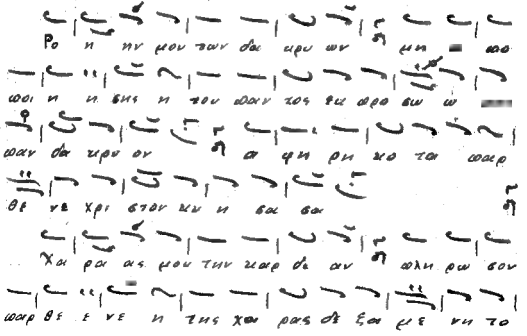 Ρο η ην μου των δα κρυ ων μη πο
ποι η η σης η του παν τος εκ προ σω ω
παν δα κρυ ον α φη ρη κο τα παρ
θε νε χρι στον κυ η σα σα
Χα ρα ας μου την καρ δι αν πλη ρω σον
παρ θε ε νε η της χα ρας δε ξα με νη το